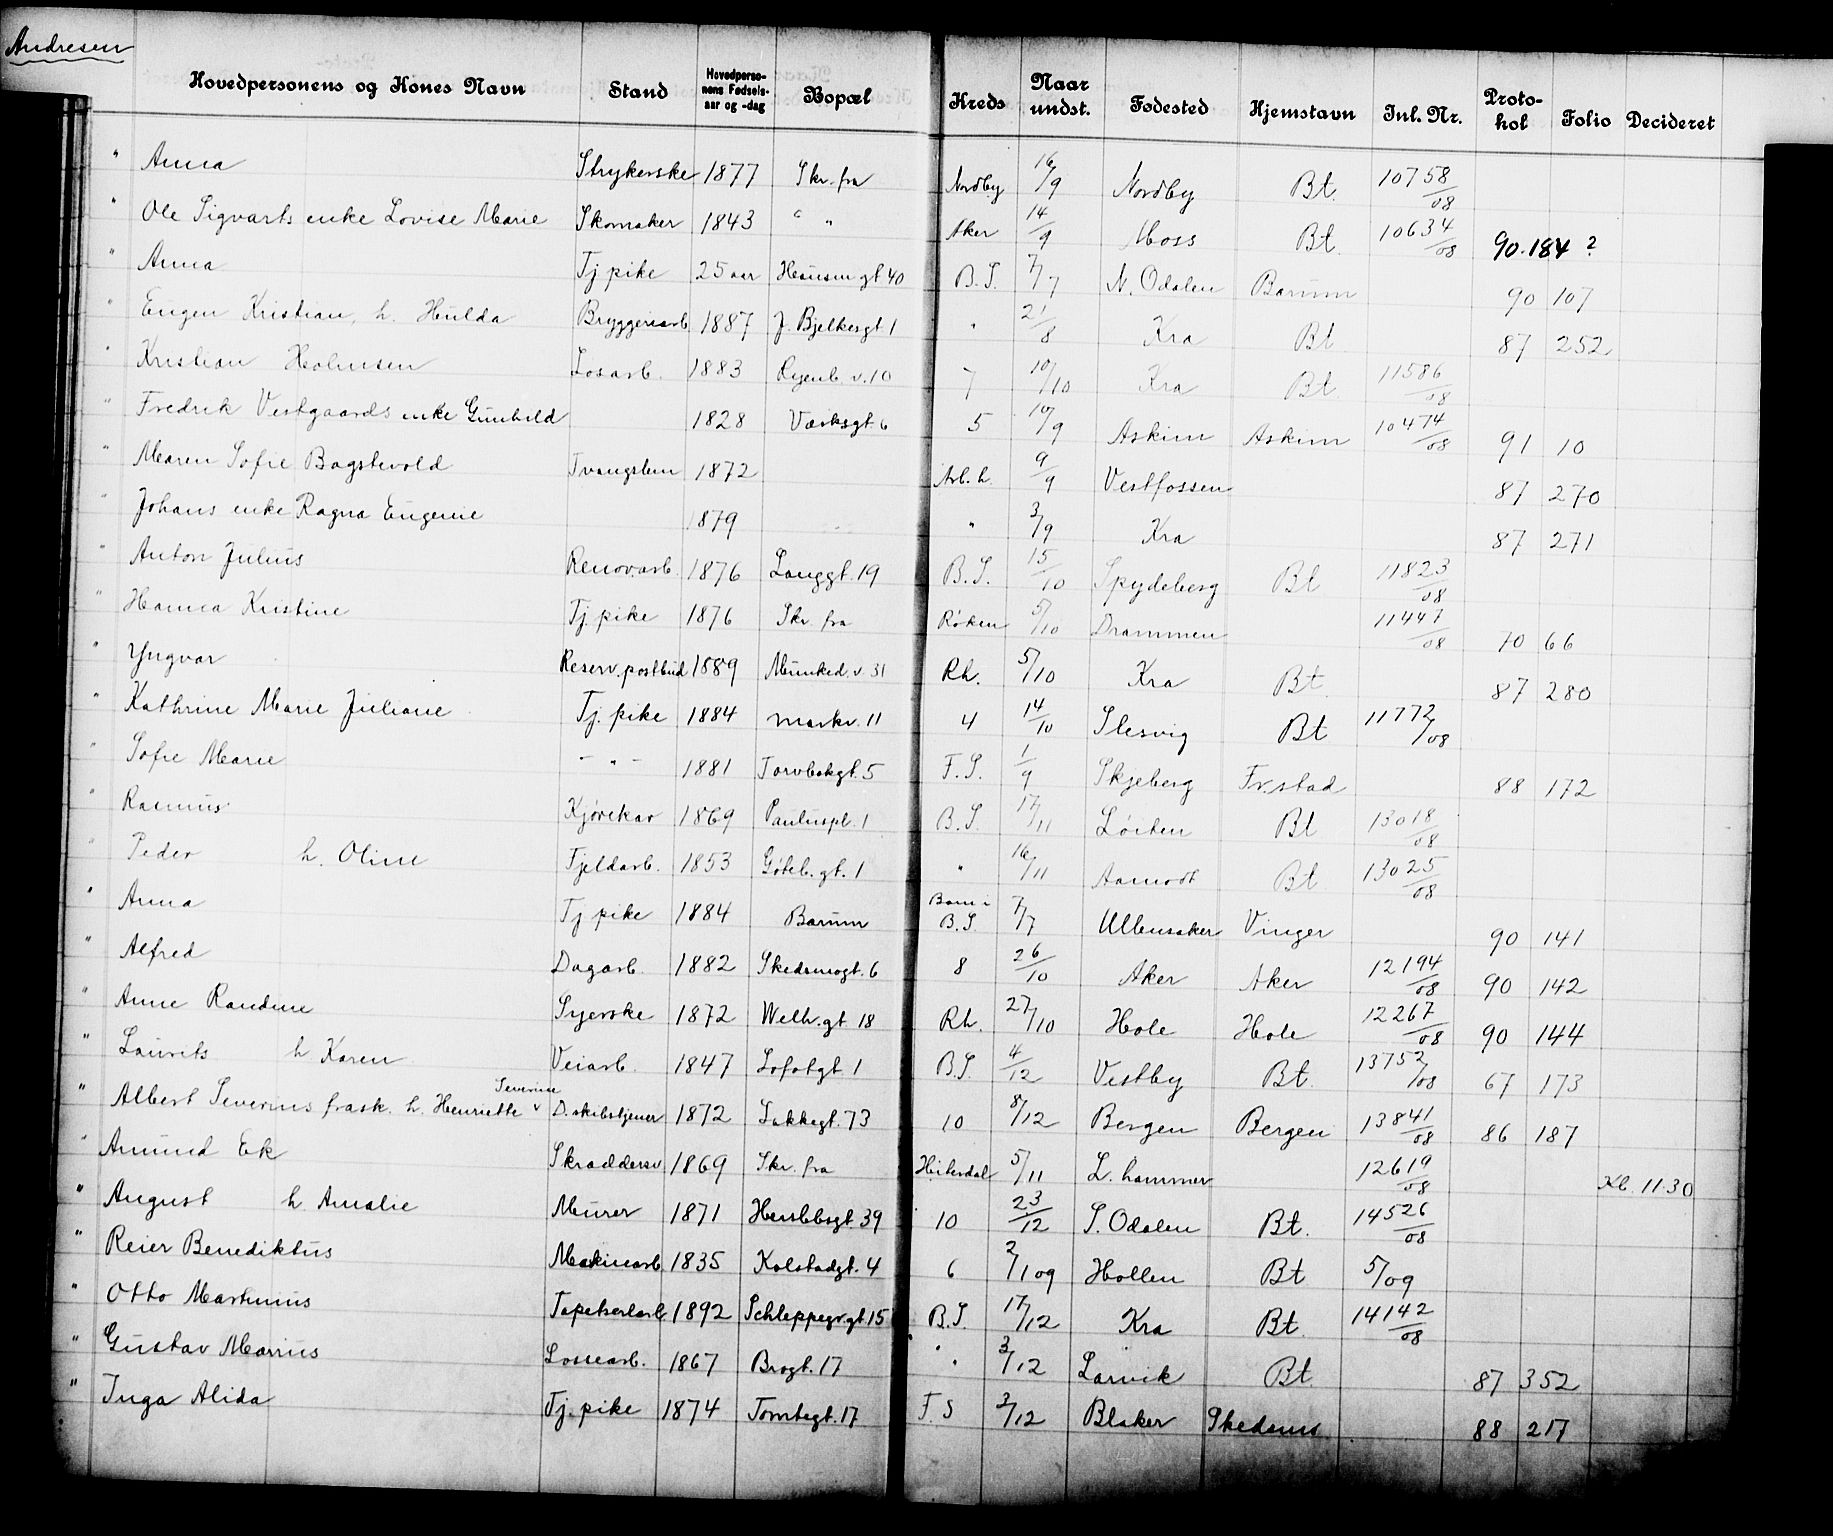 Andresen
Hovedpersonens og Kones Navn Stand Hovedperso-nens Fødsels-aar og -dag Bopæl Kreds Naar undst. Fødested Hjemstavn Inl. Nr. Proto-kol Folio Decideret
" Anna Strykerske 1877 Skr. fra Nordby 16/9 Nordby Bt. 10758/08
" Ole Sigvarts enke Lovise Marie Skomaker 1843 " " Aker 14/9 Moss Bt. 10634/08 90. 184 ?
" Anna Tj pike 25 aar Hausm gt 40 B.S. 7/7 N. Odalen Bærum 90 107
" Eugen Kristian, h. Hulda Bryggeriarb 1887 J. Bjelkesgt 1 " 21/8 Kra Bt 87 252
" Kristian Halvorsen Losarb. 1883 Ryenb. v. 10 7 10/10 Kra Bt 11586/08
" Fredrik Vestgaards enke Gunhild 1828 Værksgt. 6 5 10/9 Askim Askim 10474/08 91 10
" Maren Sofie Bagstevold Tvangslem 1872 Arb. h. 9/9 Vestfossen 87 270
" Johans enke Ragna Eugenie 1879 " 3/9 Kra 87 271
" Anton Julius Renov.arb. 1876 Langgt. 19 B.S. 15/10 Spydeberg Bt 11823/08
" Hanna Kristine Tj. pike 1876 Skr. fra Røken 5/10 Drammen 11447/08 70 66
" Yngvar Reserv. postbud 1889 Munked. v. 31 Rh. 5/10 Kra Bt. 87 280
" Kathrine Marie Juliane Tj. pike 1884 Markv. 11 4 14/10 Slesvig Bt 11772/08
" Sofie Marie - " - 1881 Torvbakgt. 5 F.S. 1/9 Skjeberg Fr.stad 88 172
" Rasmus Kjørekar 1869 Pauluspl. 1 B.S. 17/11 Løiten Bt 13018/08
" Peder h. Oline Fjeldarb. 1853 Gøteb. gt. 1 " 16/11 Aamodt Bt 13025/08
" Anna Tj pike 1884 Bærum Barn i B.S. 7/7 Ullensaker Vinger 90 141
" Alfred Dagarb. 1882 Skedsmogt. 6 8 26/10 Aker Aker 12194/08 90 142
" Anne Randine Syerske 1872 Welh. gt 18 Rh. 27/10 Hole Hole 12267/08 90 144
" Laurits h Karen Veiarb. 1847 Lofotgt. 1 B.S 4/12 Vestby Bt. 13752/08 67 173
" Albert Severins frask. h. Henriette v Severine D.skibstjener 1872 Lakkegt. 73 10 8/12 Bergen Bergen 13841/08 86 187
" Amund Ek Skræddersv 1869 Skr. fra Hitterdal 5/11 L. hammer 12619/08 Kl. 11.30
" August h Amalie Murer 1871 Herslebsgt. 39 10 23/12 S. Odalen Bt. 14526/08
" Reier Benediktus Maskinarb 1835 Kolstadgt. 4 6 2/1 09 Hollen Bt 5/09
" Otto Martinius Tapetserlærl 1892 Schleppegr.gt. 15 B.S. 17/12 Kra Bt. 14142/08
" Gustav Marius Lossearb. 1867 Brogt. 17 " 3/12 Larvik Bt. 87 352
" Inga Alida Tj. pike 1874 Tomtegt. 17 F.S 3/12 Blaker Skedsmo 88 217